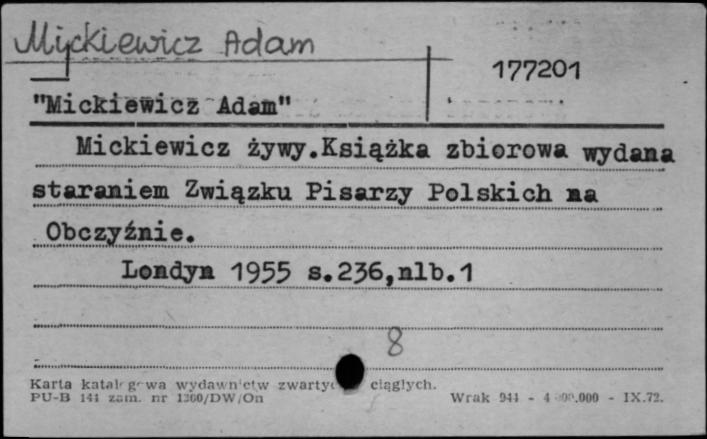 Mickiewicz Adam
177201
"Mickiewicz Adam"
Mickiewicz żywy.Książka zbiorowa wydana
staraniem Związku Pisarzy Polskich na
Obczyźnie.
Londyn 1955 s.236,nlb.1
8
Karta katalogowa wydawnictw zwartych ciągłych.
PU-B 141 zam. nr 1300/DW/On
Wrak 941 - - IX.72.